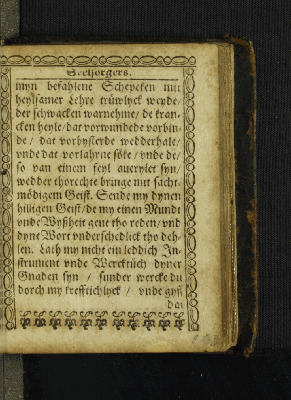 Seelsorgers.
myn befahlene Schepcken mit
heylsamer Lehre trüwlyck weyde /
der schwacken warnehme / de kran-
cken heyle / dat vorwundede vorbin-
de / dat vorbysterde wedderhale /
vnde dat vorlahrne söke / vnde de /
so van einem feyl
wedder thorechte bringe mit sacht-
mödigem Geist. Sende my dynen
hilligen Geist / de my einen Mundt
vnde Wyßheit gene tho reden / vnd
dyne Wort vnderschedlick tho deh-
len. Lath my nicht ein leddich In-
strument vnde Wercktüch dyner
Gnaden syn / sunder wercke du
dorch my krefftichlyck / vnde gyff
dat